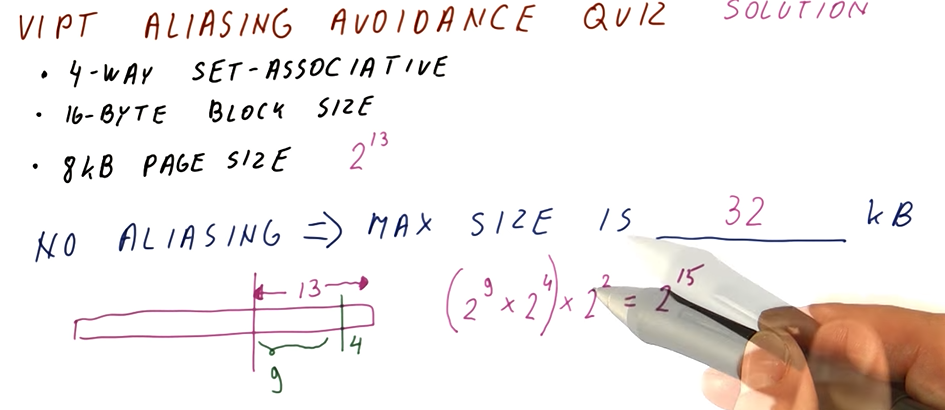 VIPT ALIASING AVOIDANCE QUIZ SOLUTION
• 4-WAY SET-ASSOCIATIVE
• 16-BYTE BLOCK SIZE
• 8kB PAGE SIZE 2^13
NO ALIASING => MAX SIZE IS 32 kB
13
(2^9 × 2^4) × 2^2 = 2^15
4
9